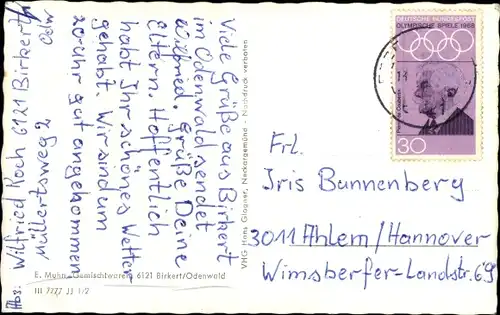 Abs: Wilfried Koch 6121 Birkert/
Odw
Müllertsweg 2
Viele Grüße aus Birkert
im Odenwald sendet
Wilfried. Grüße Deine
Eltern. Hoffentlich
habt Ihr schönes Wetter
gehabt. Wir sind um
20 Uhr gut angekommen
E. Mohn Gemischtwaren 6121 Birkert/Odenwald
III 7777 JJ 1/2
VHG Hans Glogner, Neckargemünd - Nachdruck verboten
DEUTSCHE BUNDESPOST
OLYMPISCHE SPIELE 1968
Pierre de Coubertin
30
Frl.
Iris Bunnenberg
3011 Ahlem/Hannover
Wunstorfer-Landstr. 69